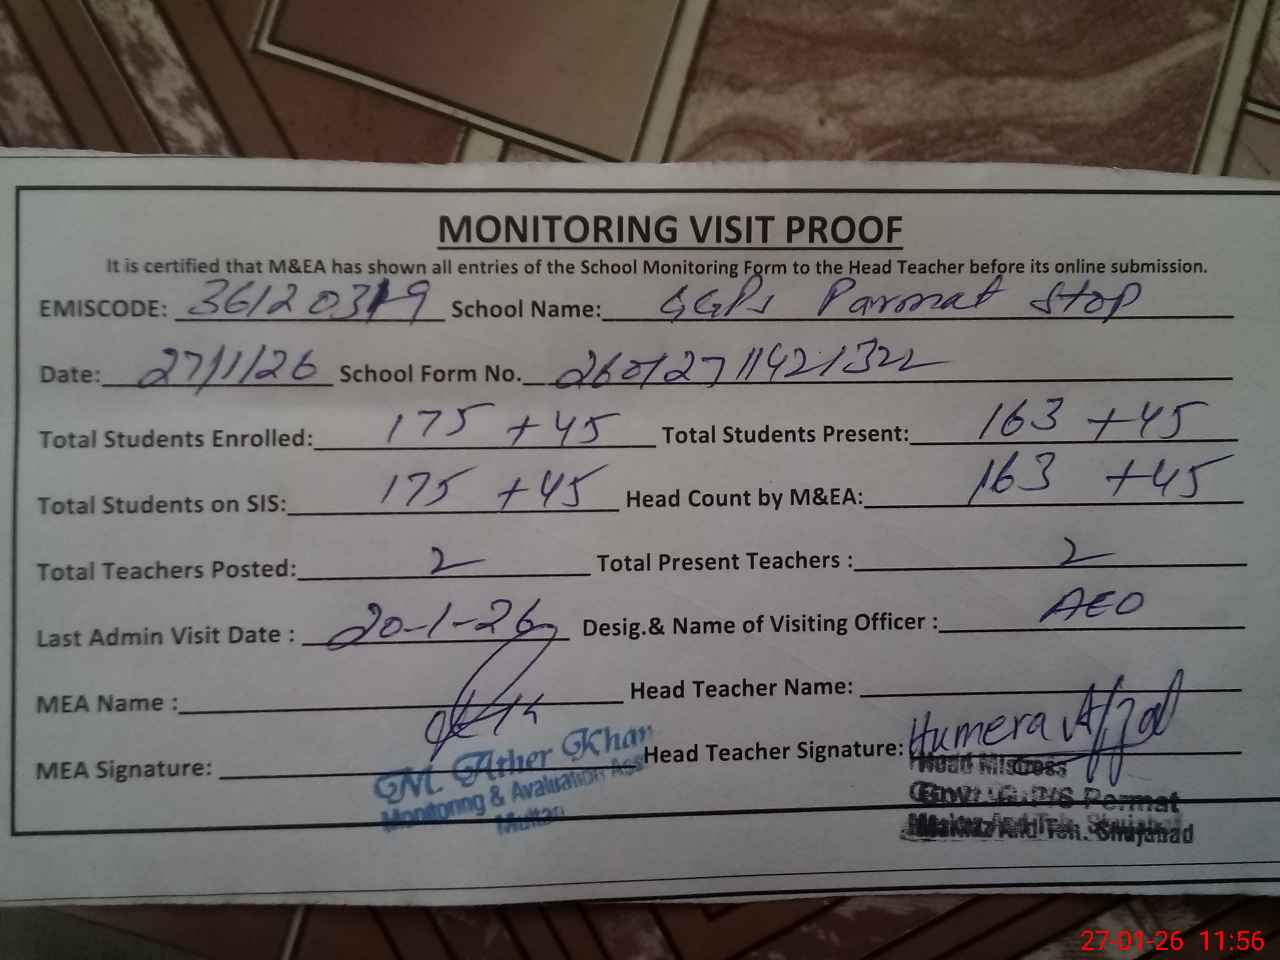 MONITORING VISIT PROOF
It is certified that M&EA has shown all entries of the School Monitoring Form to the Head Teacher before its online submission.
EMISCODE: 36120319 School Name: GGPS Parmat Stop
Date: 27/1/26 School Form No. 26012711421322
Total Students Enrolled: 175 +45 Total Students Present: 163 +45
Total Students on SIS: 175 +45 Head Count by M&EA: 163 +45
Total Teachers Posted: 2 Total Present Teachers : 2
Last Admin Visit Date : 20-1-26 Desig.& Name of Visiting Officer : AEO
MEA Name : Head Teacher Name:
MEA Signature: Head Teacher Signature: Humera Afzal
M. Ather Khan
Monitoring & Avaluation Ass
Multan
Head Mistress
Govt. Permat
Teh. Shujabad
27-01-26 11:56